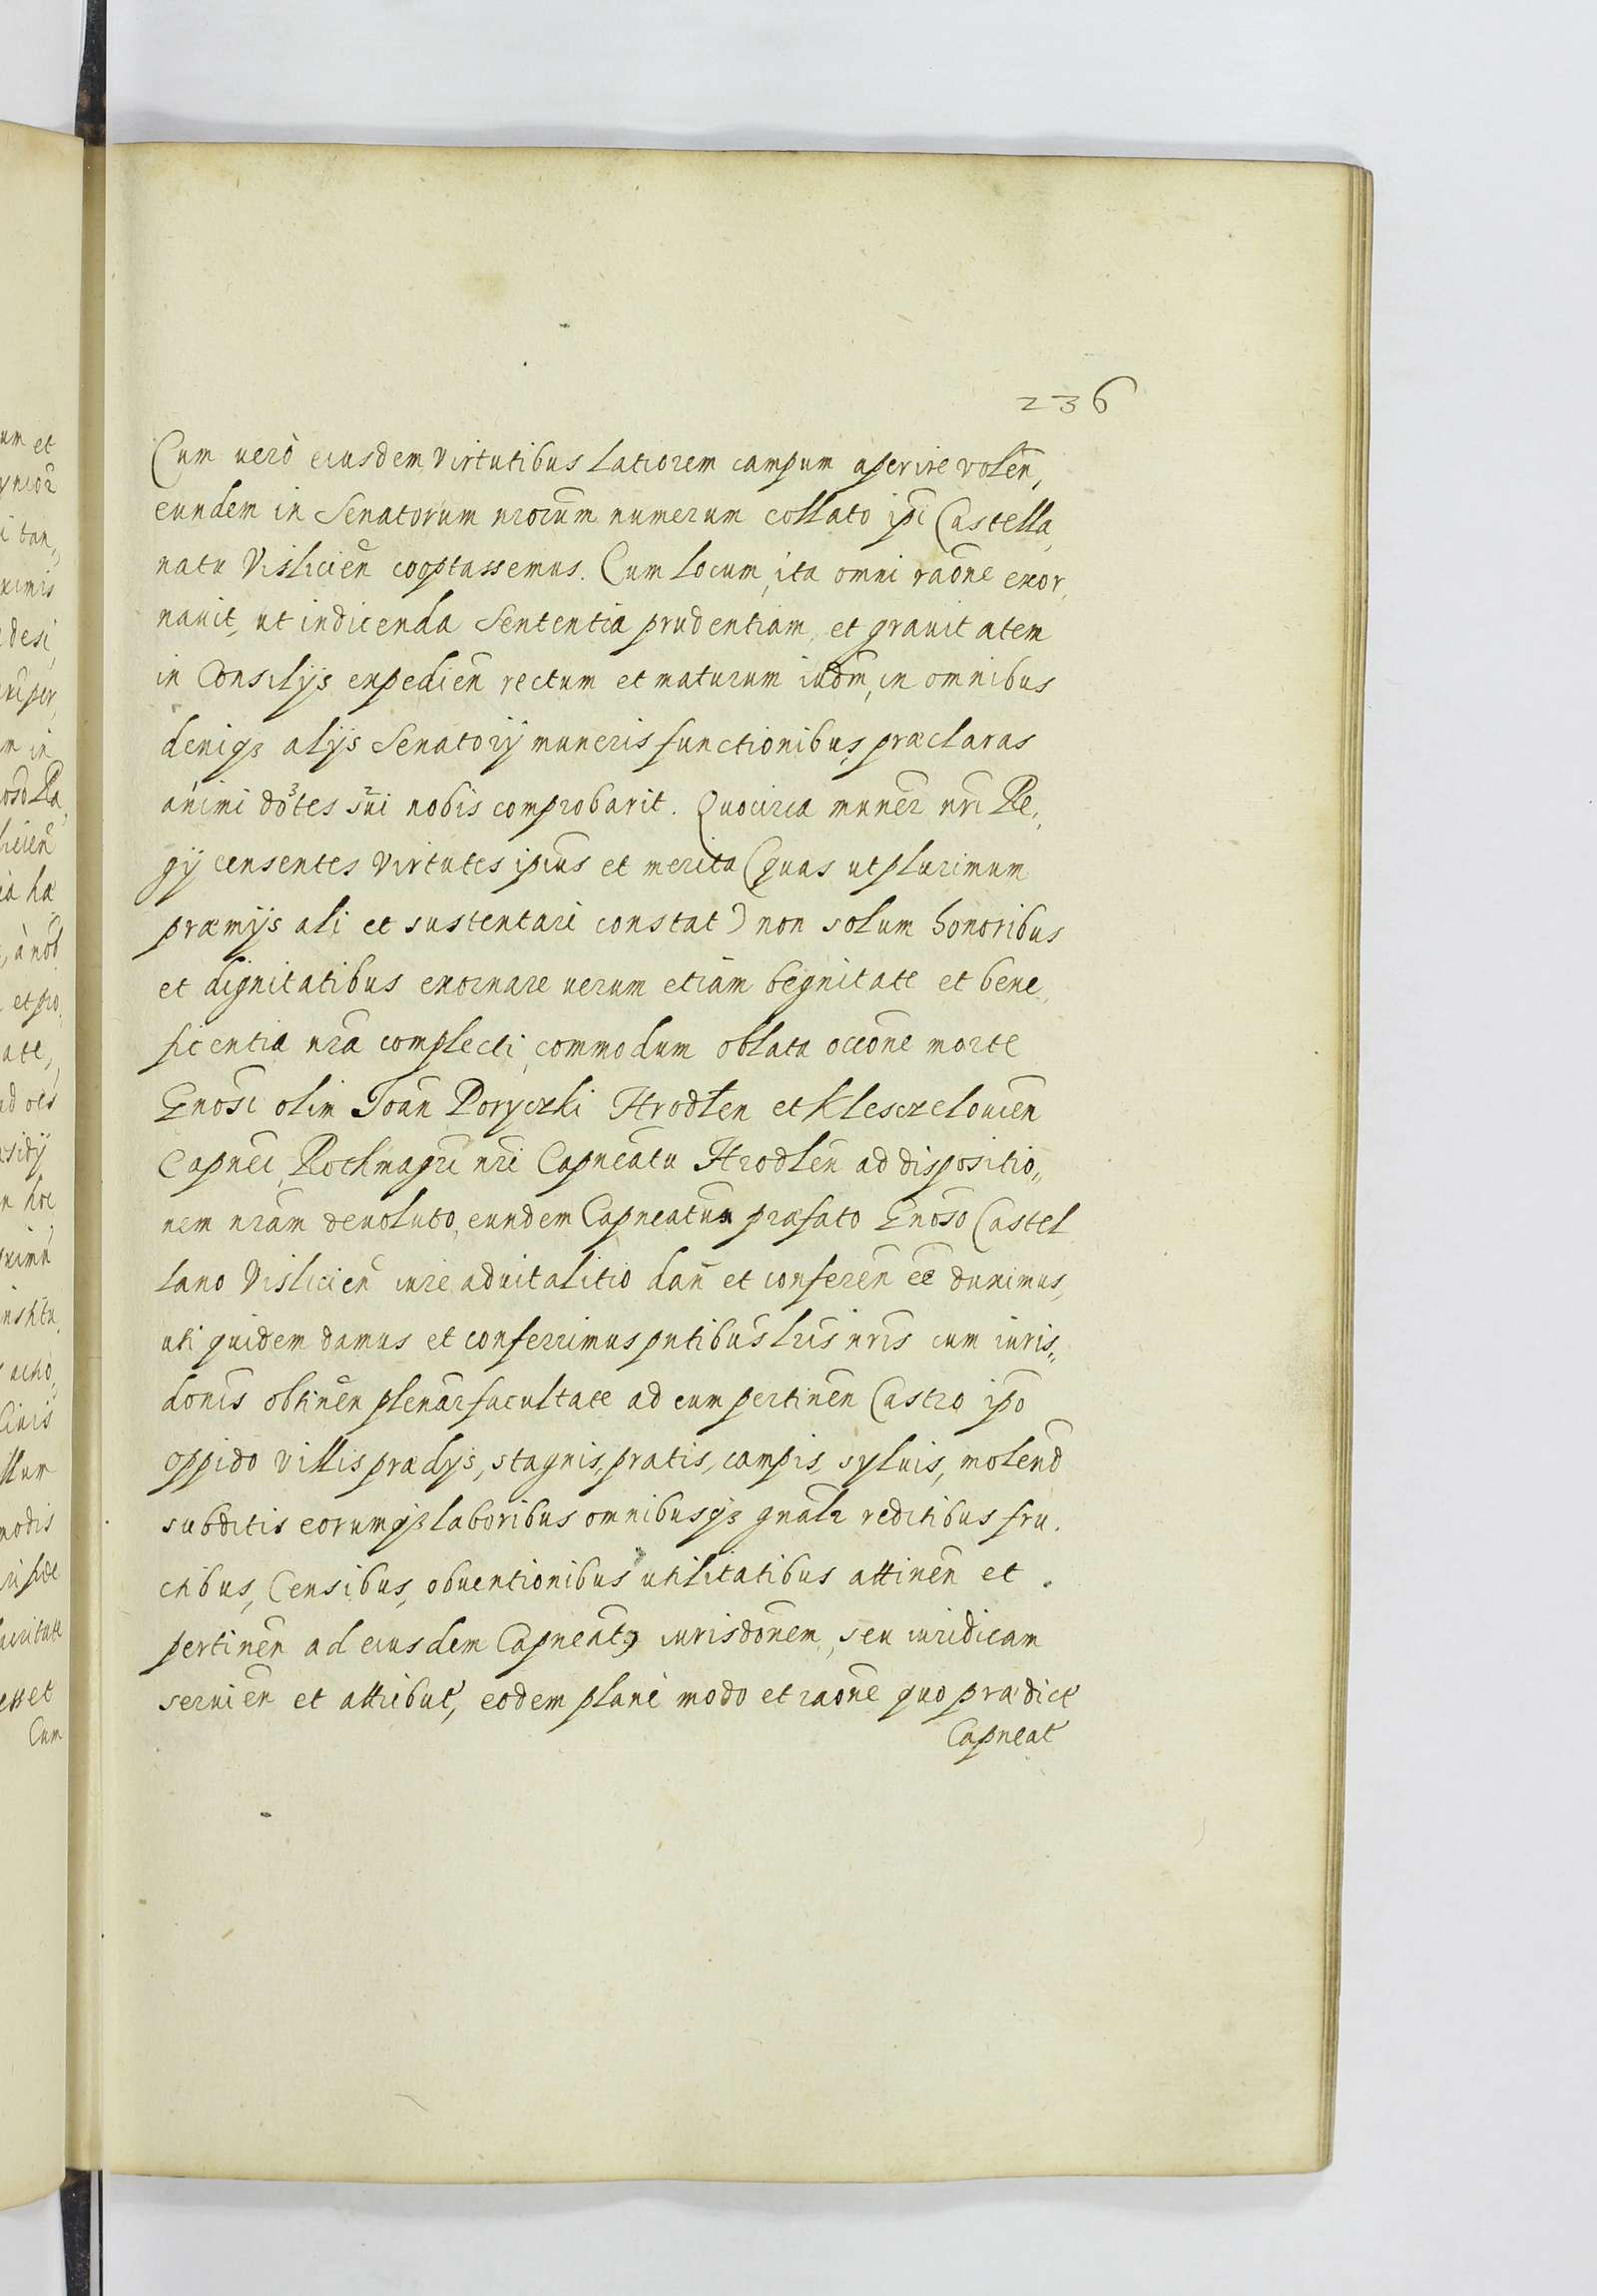 236
Cum uerò eiusdem Virtutibus Latiorem campum aperire volen̄,
eundem in Senatorum nrorum̄ numerum collato ipi̅ Castella,
natu Vislicien̄ cooptassemus. Cum locum, ita omni rao̅ne exor,
nauit, ut indicenda Sententia prudentiam, et grauitatem
in Consilijs expedien̄ rectum et maturum iudm̅, in omnibus
deniqꝫ alijs Senatorij muneris functionibus, præclaras
animi dotes sui nobis comprobarit. Quocirca muner̄ nr̅i Re,,
gij censentes Virtutes ipiu̅s et merita (quas ut plurimum
præmijs ali et sustentari constat) non solum honoribus
et dignitatibus exornare uerum etiam begnitate et bene,
ficentia nr̅a complecti, commodum oblata occo̅ne morte
Gnosi olim Joan̄ Poryczki Hrodlen̄ et Klesczelouien̄
Capnei̅, Rothmagri̅ nr̅i Capnea̅tu Hrodlen̄ ad dispositio,,
nem nr̅am deuoluto, eundem Capneatum̄ præfato Gnoso̅ Castel
lano Vislicien̄ iure aduitalitio dan̄ et conferen̄ ee̅ duximus,
uti quidem damus et conferrimus pntibus̅ Lris̅ nris̅ cum iuris,,
donis̅ obtinen̄ plenar̄ facultate ad eum pertinen̄ Castro ipo̅
oppido Villis prædijs, stagnis, pratis, campis, syluis, molend̄
subditis eorumqꝫ laboribus omnibusqꝫ gnalr̅ reditibus fru.
ctibus, Censibus, obuentionibus utilitatibus attinen̄ et
pertinen̄ ad eiusdem Capneatꝯ iurisdonem̅, seu iuridicam
seruien̄ et attribut̄, eodem planè modo et rao̅ne quo prædict̄
Capneat̄